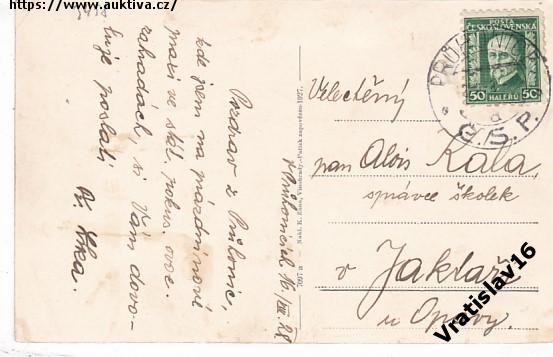 https://www.auktiva.cz/
POŠTA
ČESKOSLOVENSKÁ
50 HALÉŘŮ 50
PRŮH
Č.S.P.
a
Pozdrav z Průhonic,
kde jsem na prázdninové
praxi ve stát. pokus. ovoc.
zahradách, si Vám dovo-
luje poslati
V Průhonicích 16. VIII. 28
7097 a - Nakl. K. Zima, Vinohrady - Patisk zapovězen 1927.
Velectěný
pan Alois Kala,
správce školek
v Jaktaři
u Opavy.
Vratislav16